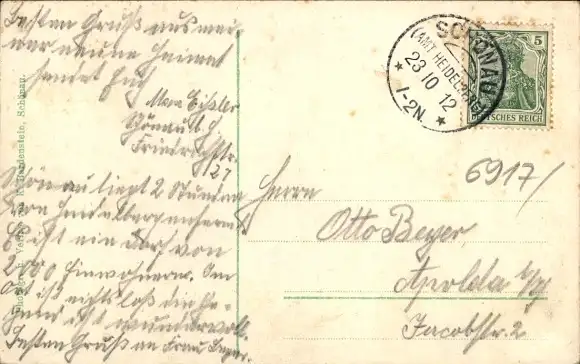 Besten Gruß aus mei-
ner neuen Heimat
sendet Euch
Max Eißler
Schönau b. H.
Friedrichstr.
27
Schönau liegt 2 Stunden
von Heidelberg entfernt
Es ist ein Dorf von
2000 Einwohnern. Im
Ort ist nichts los die Ge-
gend ist wundervoll.
Besten Gruß an Frau Beyer.
Verlag von Hardenstein, Schönau.
SCHÖNAU
(AMT HEIDELBERG)
23 10 12
* 1-2N. *
5
DEUTSCHES REICH
6917/
Herrn
Otto Beyer
Apolda
Jacobstr. 2